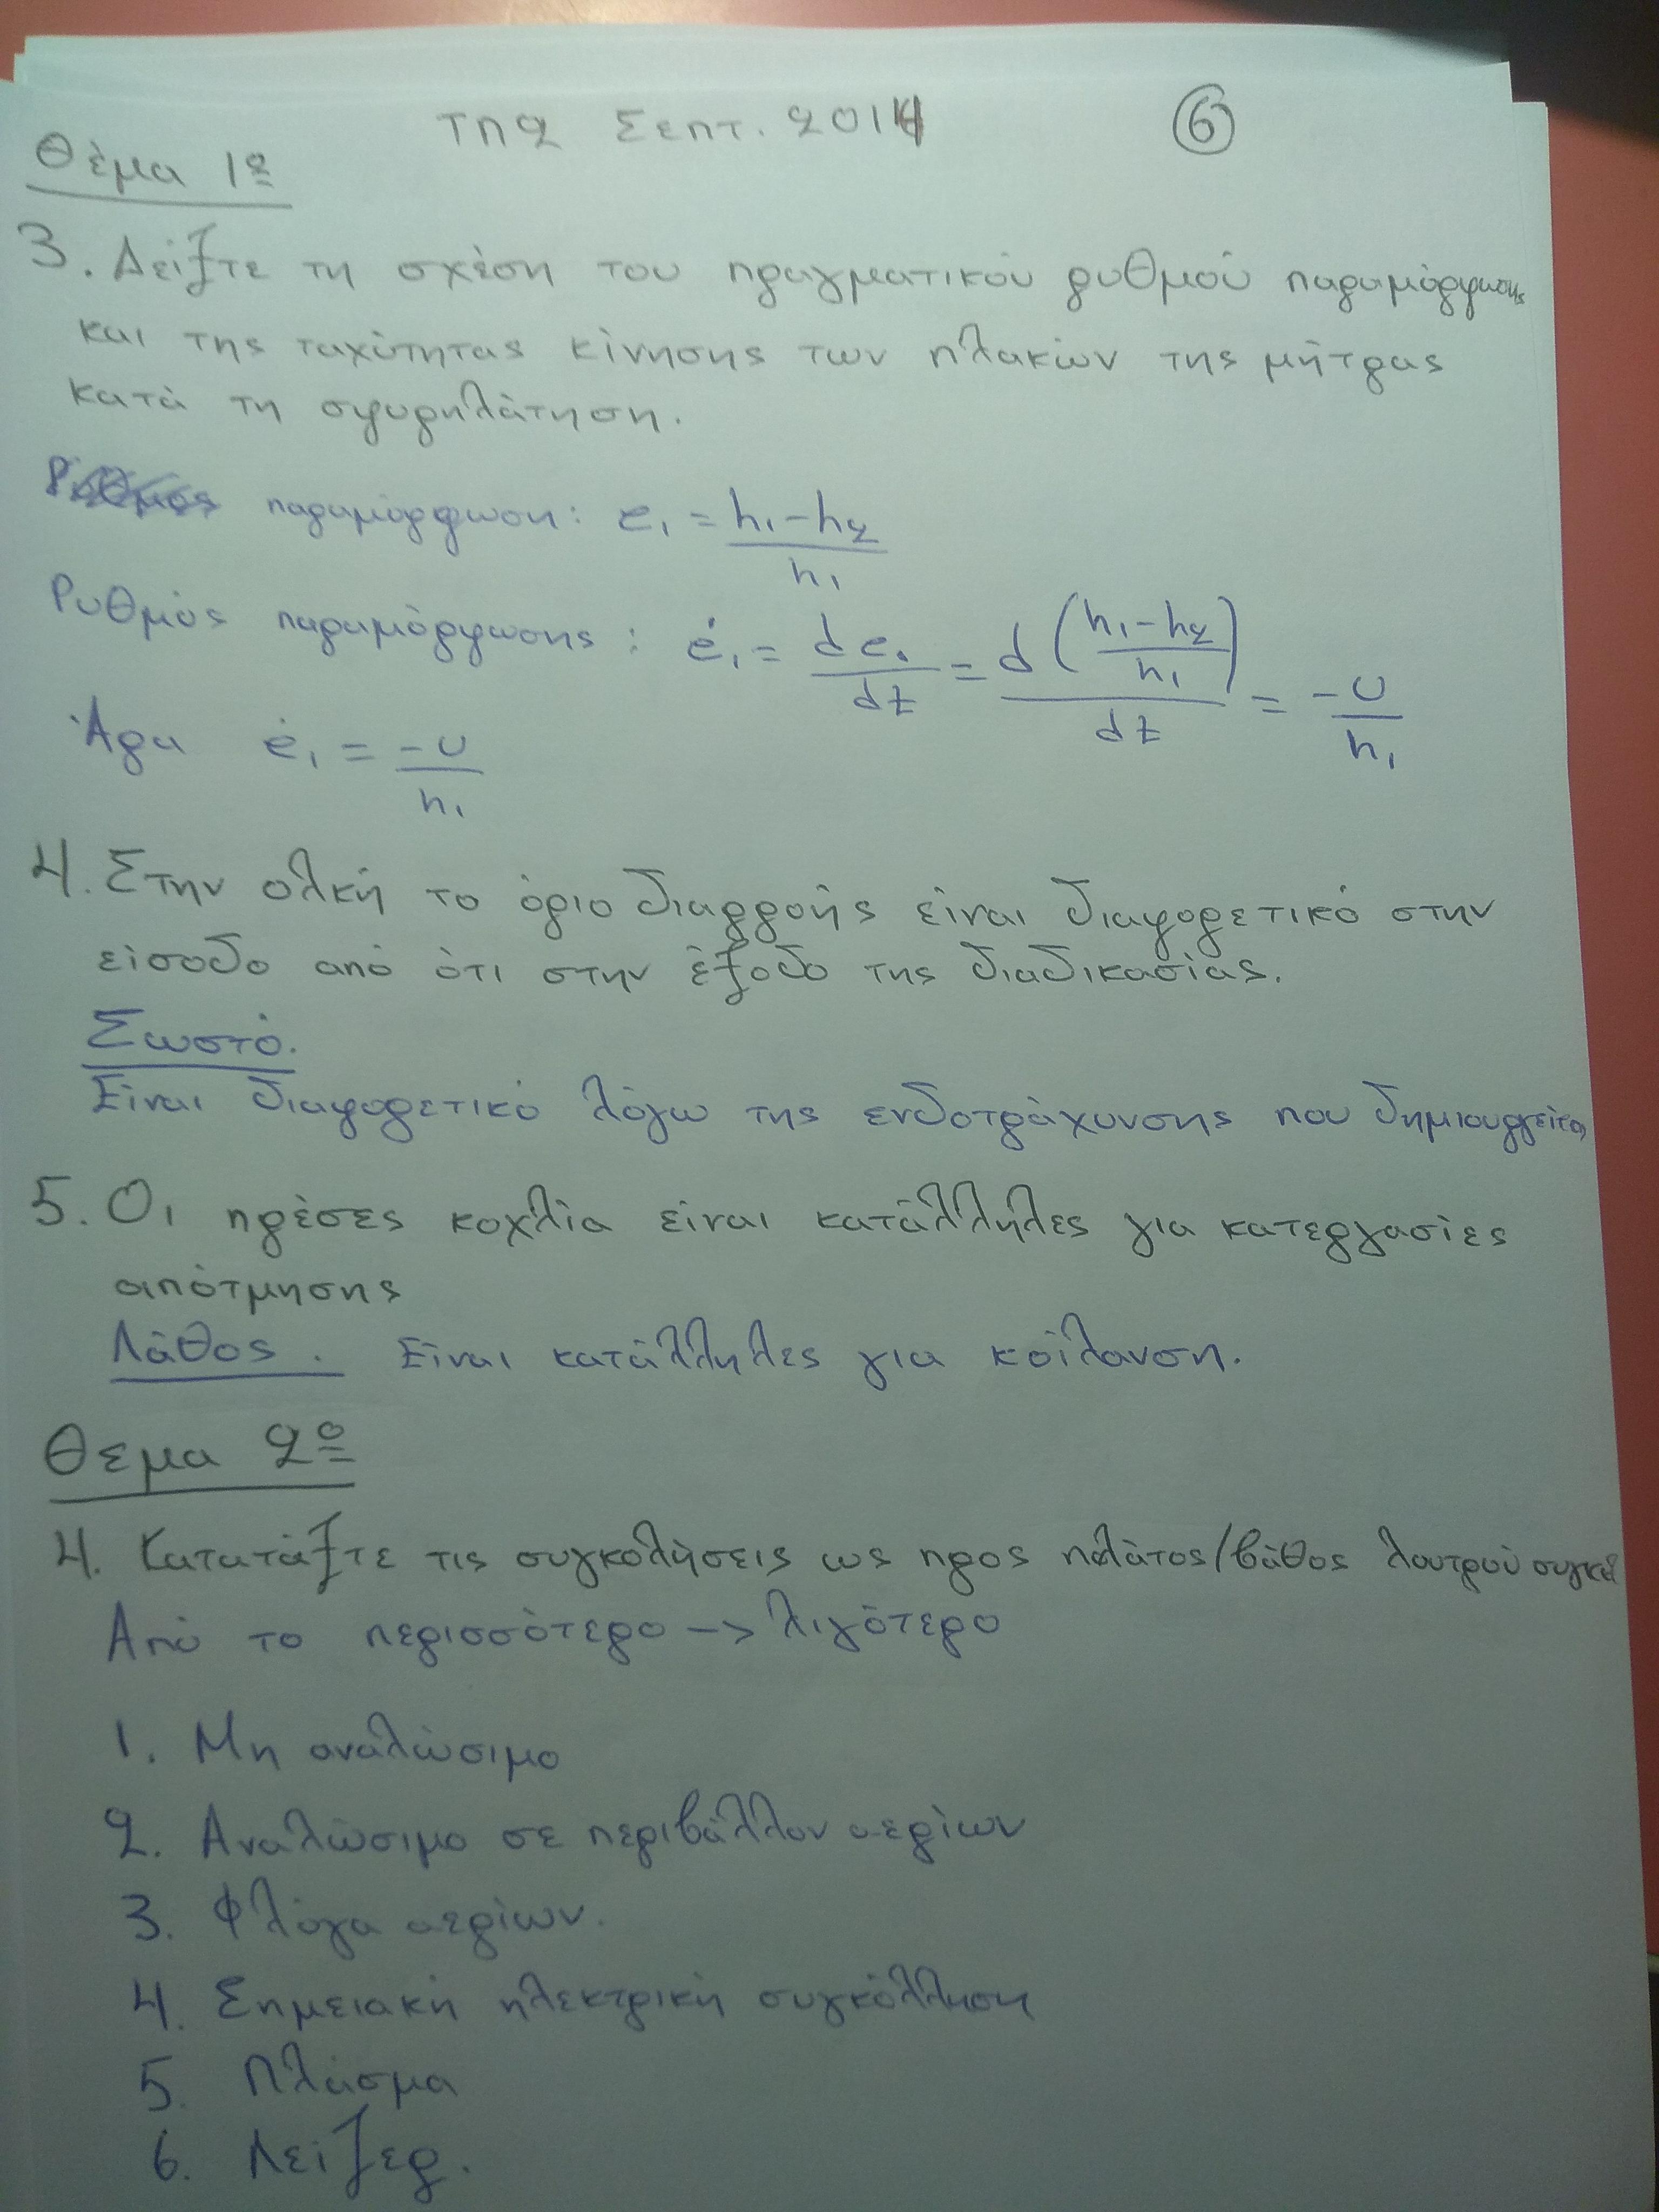 ΤΠ2 Σεπτ. 2014 ⑥
Θέμα 1º
3. Δείξτε τη σχέση του πραγματικού ρυθμού παραμόρφωσης
και της ταχύτητας κίνησης των πλακών της μήτρας
κατά τη σφυρηλάτηση.
παραμόρφωση: e₁ = (h₁-h₂)/h₁
Ρυθμός παραμόρφωσης: ė₁ = de₁/dt = d((h₁-h₂)/h₁)/dt = -υ/h₁
Άρα ė₁ = -υ/h₁
4. Στην ολκή το όριο διαρροής είναι διαφορετικό στην
είσοδο από ότι στην έξοδο της διαδικασίας.
Σωστό.
Είναι διαφορετικό λόγω της ενδοτράχυνσης που δημιουργείται
5. Οι πρέσες κοχλία είναι κατάλληλες για κατεργασίες
απότμησης
Λάθος. Είναι κατάλληλες για κοίλανση.
Θεμα 2º
4. Κατατάξτε τις συγκολήσεις ως προς πλάτος/βάθος λουτρού
Από το περισσότερο -> λιγότερο
1. Μη αναλώσιμο
2. Αναλώσιμο σε περιβάλλον αερίων
3. Φλόγα αερίων.
4. Σημειακή ηλεκτρική συγκόλληση
5. Πλάσμα
6. Λείζερ.